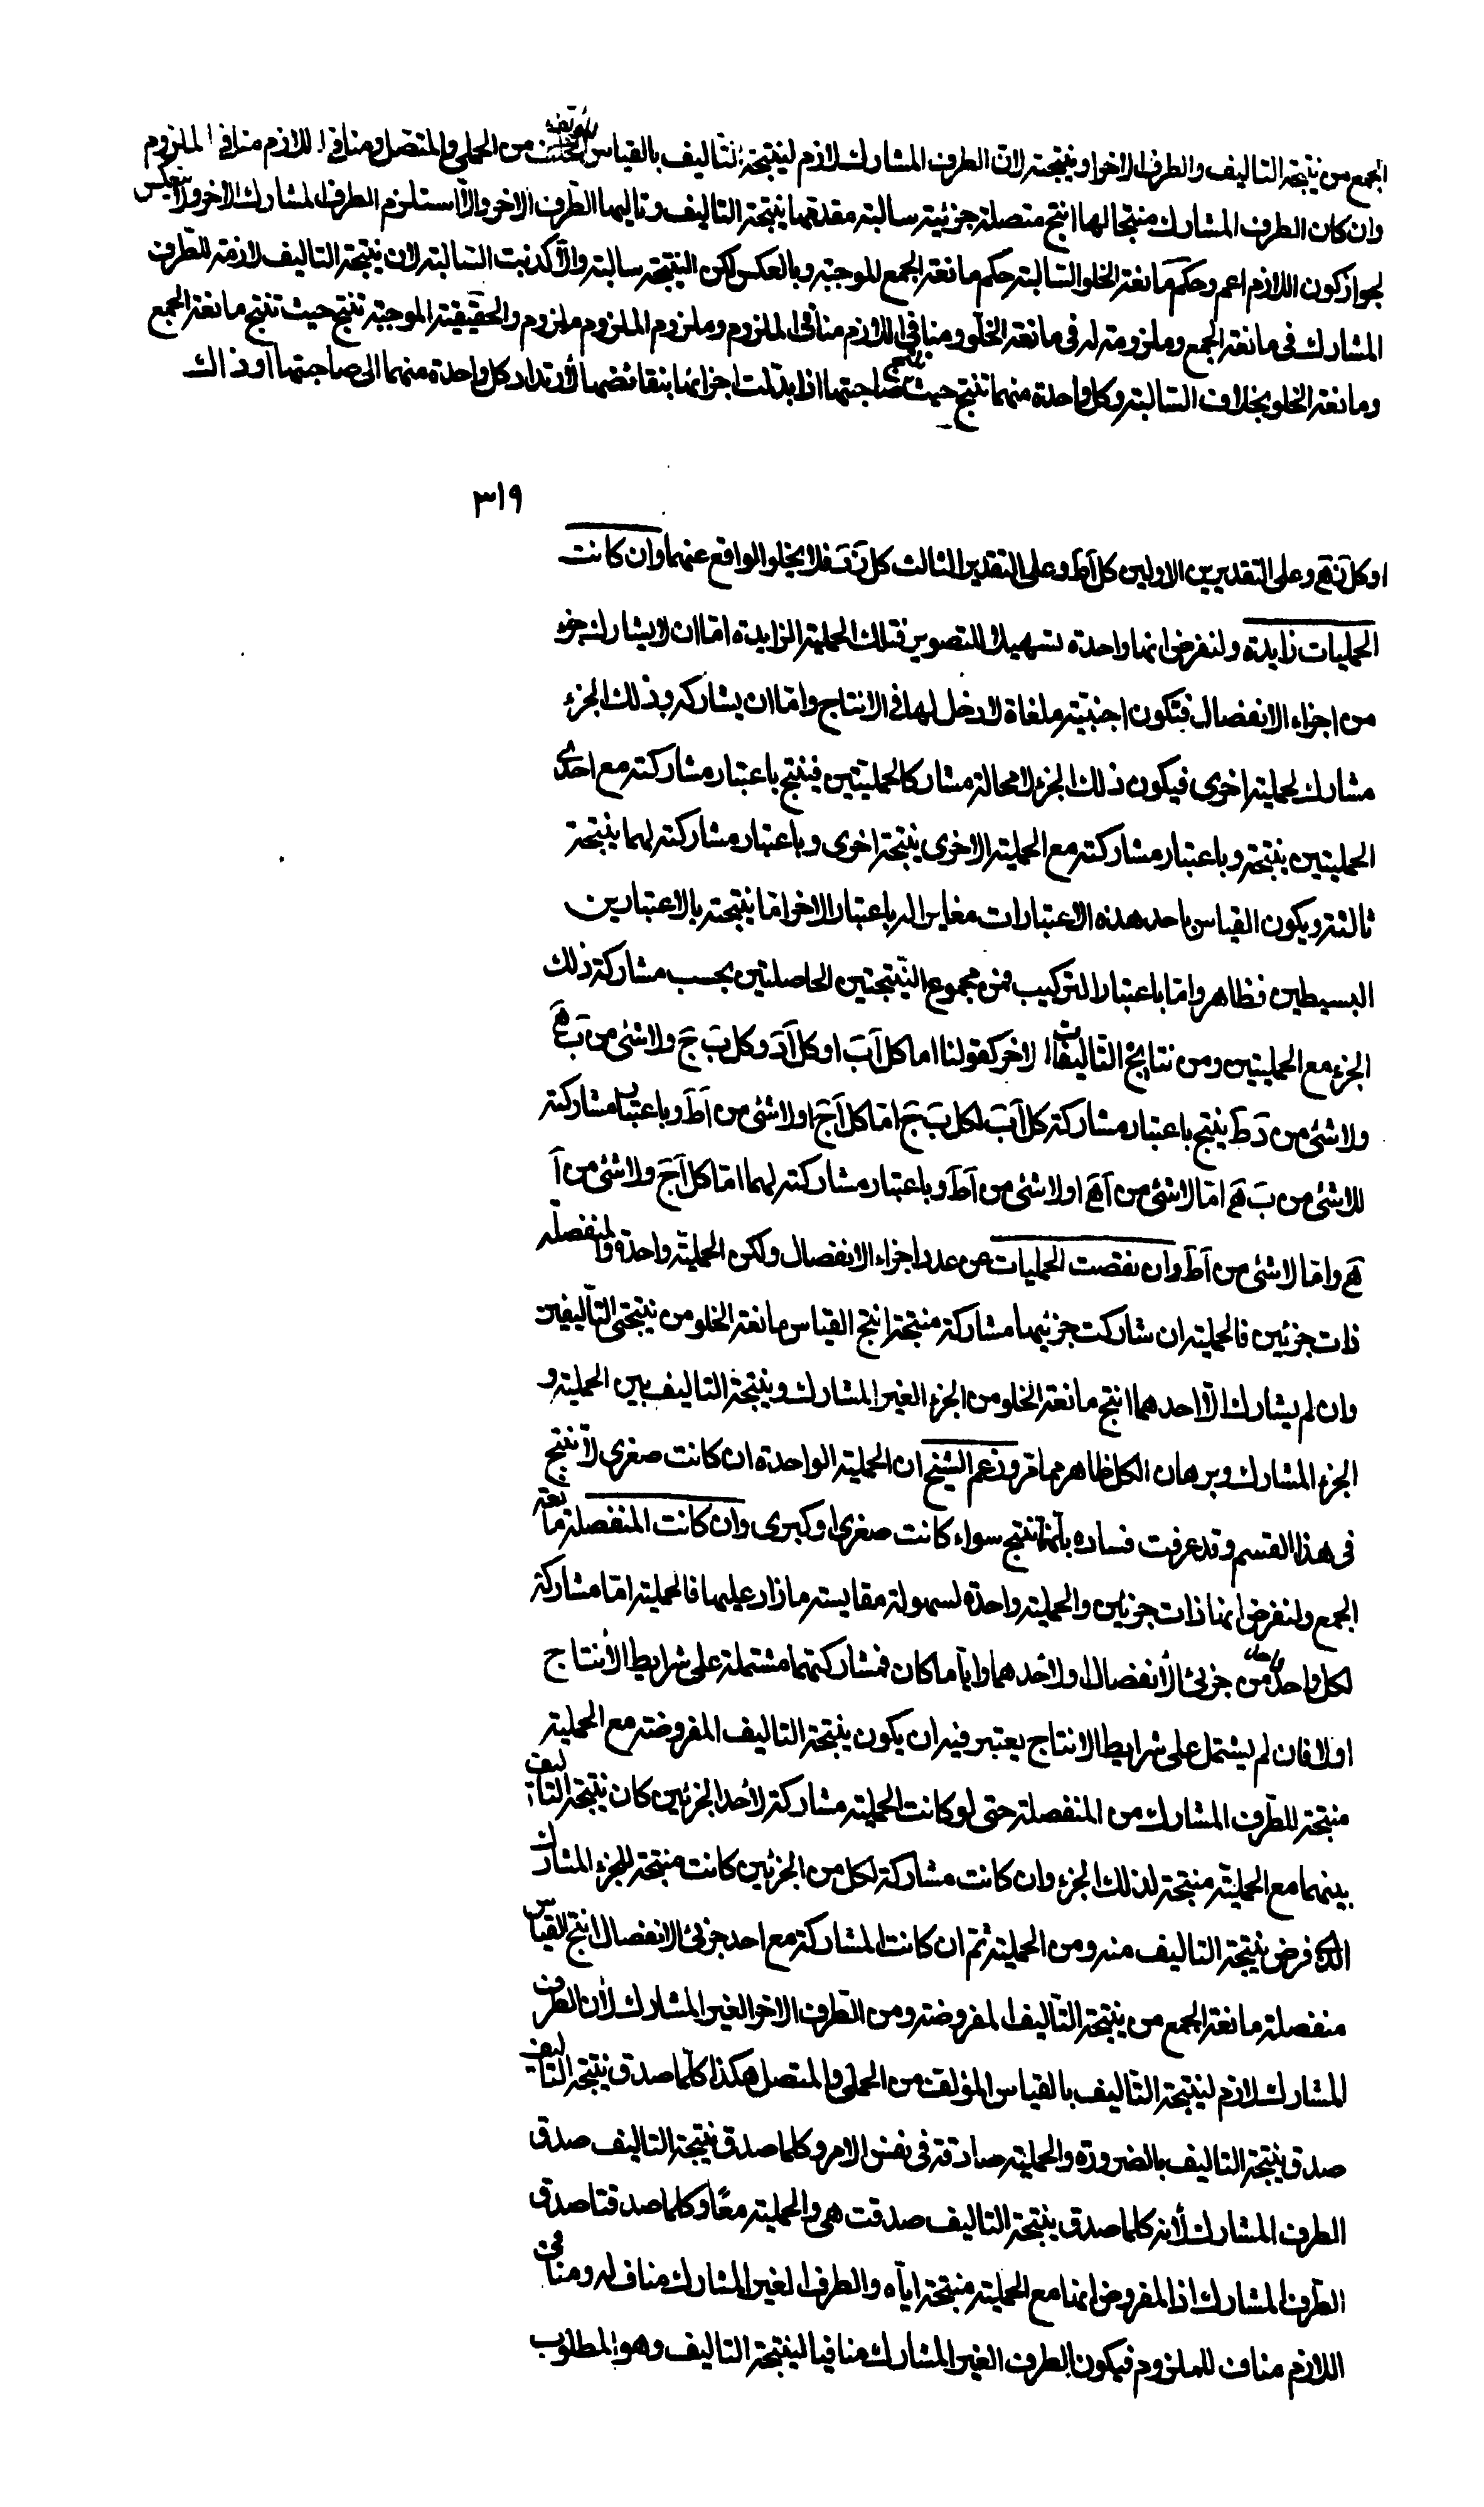 الجمع من نتيجة التاليف والطرف الاخر او نتيجته لان الطرف المشارك لازم لنتيجة التاليف بالقياس المؤلف من الحملي والمتصل ومنافي اللازم منافي الملزوم
وان كان الطرف المشارك منتجا لها انتج متصلة جزئية سالبة مقدمها نتيجة التاليف وتاليها الطرف الاخر والا استلزم الطرف المشارك الاخر ولا ينعكس
لجواز كون اللازم اعم وحكم مانعة الخلو السالبة حكم مانعة الجمع الموجبة وبالعكس لكن النتيجة سالبة والا كذبت السالبة لان نتيجة التاليف لازمة للطرف
المشارك في مانعة الجمع وملزومة له في مانعة الخلو ومنافي اللازم منافي الملزوم وملزوم الملزوم ملزوم والحقيقية الموجبة تنتج حيث تنتج مانعة الجمع
ومانعة الخلو بخلاف السالبة وكل واحدة منهما تنتج حيث تنتج صاحبتها اذا بدلت اجزائها بنقائضها لأرتداد كل واحدة منهما الى صاحبتها اذ ذاك
٣١٩
او كل ده وعلى التقديرين الاولين كل اط وعلى التقدير الثالث كل فلا يخلو الواقع عنهما وان كانت
الحمليات زايدة ولنفرض انها واحدة تسهيلا للتصوير فتلك الحملية الزايدة اما ان لا يشارك جزء
من اجزاء الانفصال فتكون اجنبية ملغاة لا دخل لها في الانتاج واما ان يشاركه وذلك الجزء
مشارك لحملية اخرى فيكون ذلك الجزء لا محالة مشاركا لحمليتين فينتج باعتبار مشاركته مع احدى
الحمليتين نتيجة وباعتبار مشاركته مع الحملية الاخرى نتيجة اخرى وباعتبار مشاركته لهما نتيجة
ثالثة ويكون القياس باحد هذه الاعتبارات مغايرا له باعتبار الاخر اما نتيجته بالاعتبارين
البسيطين فظاهر واما باعتبار التركيب فمن مجموع النتيجتين الحاصلتين بحسب مشاركة ذلك
الجزء مع الحمليتين ومن نتايج التاليفات الاخر كقولنا اما كل اب او كل اد وكل ب ج ولا شئ من ب ه
ولا شئ من د ط ينتج باعتبار مشاركة كل اب لكل ب ج اما كل اج او لا شئ من اط وباعتبار مشاركته
للاشئ من ب ه اما لا شئ من اه او لا شئ من اط وباعتبار مشاركته لهما اما كل اج ولا شئ من ا
ه واما لا شئ من اط وان نقصت الحمليات عن عدد اجزاء الانفصال ولكن الحملية واحدة والمنفصلة
ذات جزئين فالحملية ان شاركت جزئيها مشاركة منتجة انتج القياس مانعة الخلو من نتيجتي التاليفين
وان لم يشارك الا احدهما انتج مانعة الخلو من الجزء الغير المشارك ونتيجة التاليف بين الحملية و
الجزء المشارك وبرهان الكل ظاهر مما مر وزعم الشيخ ان الحملية الواحدة ان كانت صغرى لا تنتج
في هذا القسم وقد عرفت فساده بأنها تنتج سواء كانت صغرى او كبرى وان كانت المنفصلة مانعة
الجمع ولنفرض انها ذات جزئين والحملية واحدة لسهولة مقايسة ما زاد عليها فالحملية اما مشاركة
لكل واحد من جزئي الأنفصال او لأحدهما وايا ما كان فمشاركتهما مشتملة على شرايط الأنتاج
اولا فان لم يشتمل على شرايط الانتاج يعتبر فيه ان يكون نتيجة التاليف المفروضة مع الحملية
منتجة للطرف المشارك من المنفصلة حتى لو كانت الحملية مشاركة لأحد الجزئين كان نتيجة التاليف
بينهما مع الحملية منتجة لذلك الجزء وان كانت مشاركة لكل من الجزئين كانت منتجة للجزء المشارك
الذي فرض نتيجة التاليف منه ومن الحملية ثم ان كانت المشاركة مع احد جزئي الانفصال انتج القياس
منفصلة مانعة الجمع من نتيجة التاليف المفروضة ومن الطرف الاخر الغير المشارك لأن الطرف
المشارك لازم لنتيجة التاليف بالقياس المؤلف من الحملي والمتصل هكذا كلما صدق نتيجة التاليف
صدق نتيجة التاليف بالضرورة والحملية صادقة في نفس الامر وكلما صدق نتيجة التاليف صدق
الطرف المشارك لأنه كلما صدق نتيجة التاليف صدقت هي والحملية معا وكلما صدقتا صدق
الطرف المشارك اذ المفروض انها مع الحملية منتجة اياه والطرف الغير المشارك مناف له ومنافى
اللازم مناف للملزوم فيكون الطرف الغير المشارك منافيا لنتيجة التاليف وهو المطلوب